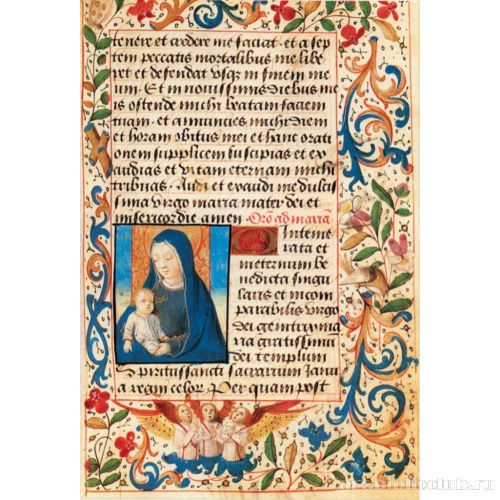 tenere et credere me faciat · et a sep
tem peccatis mortalibus me libe
ret et defendat usqꝫ in finem me
um · Et in novissimis diebus me
is ostende michi beatam faciem
tuam · et annuncies michi diem
et horam obitus mei et hanc orati
onem supplicem suscipias et ex
audias et vitam eternam michi
tribuas · Audi et exaudi me dulcis
sima virgo maria mater dei et
misericordie amen · Orõ ad mariã
O Inteme
rata et
in eternum be
nedicta singu
laris et incom
parabilis virgo
dei genitrix ma
ria gratissimũ
dei templum
Spiritussancti sacrarium Janu
a regni celoꝝ · Per quam post